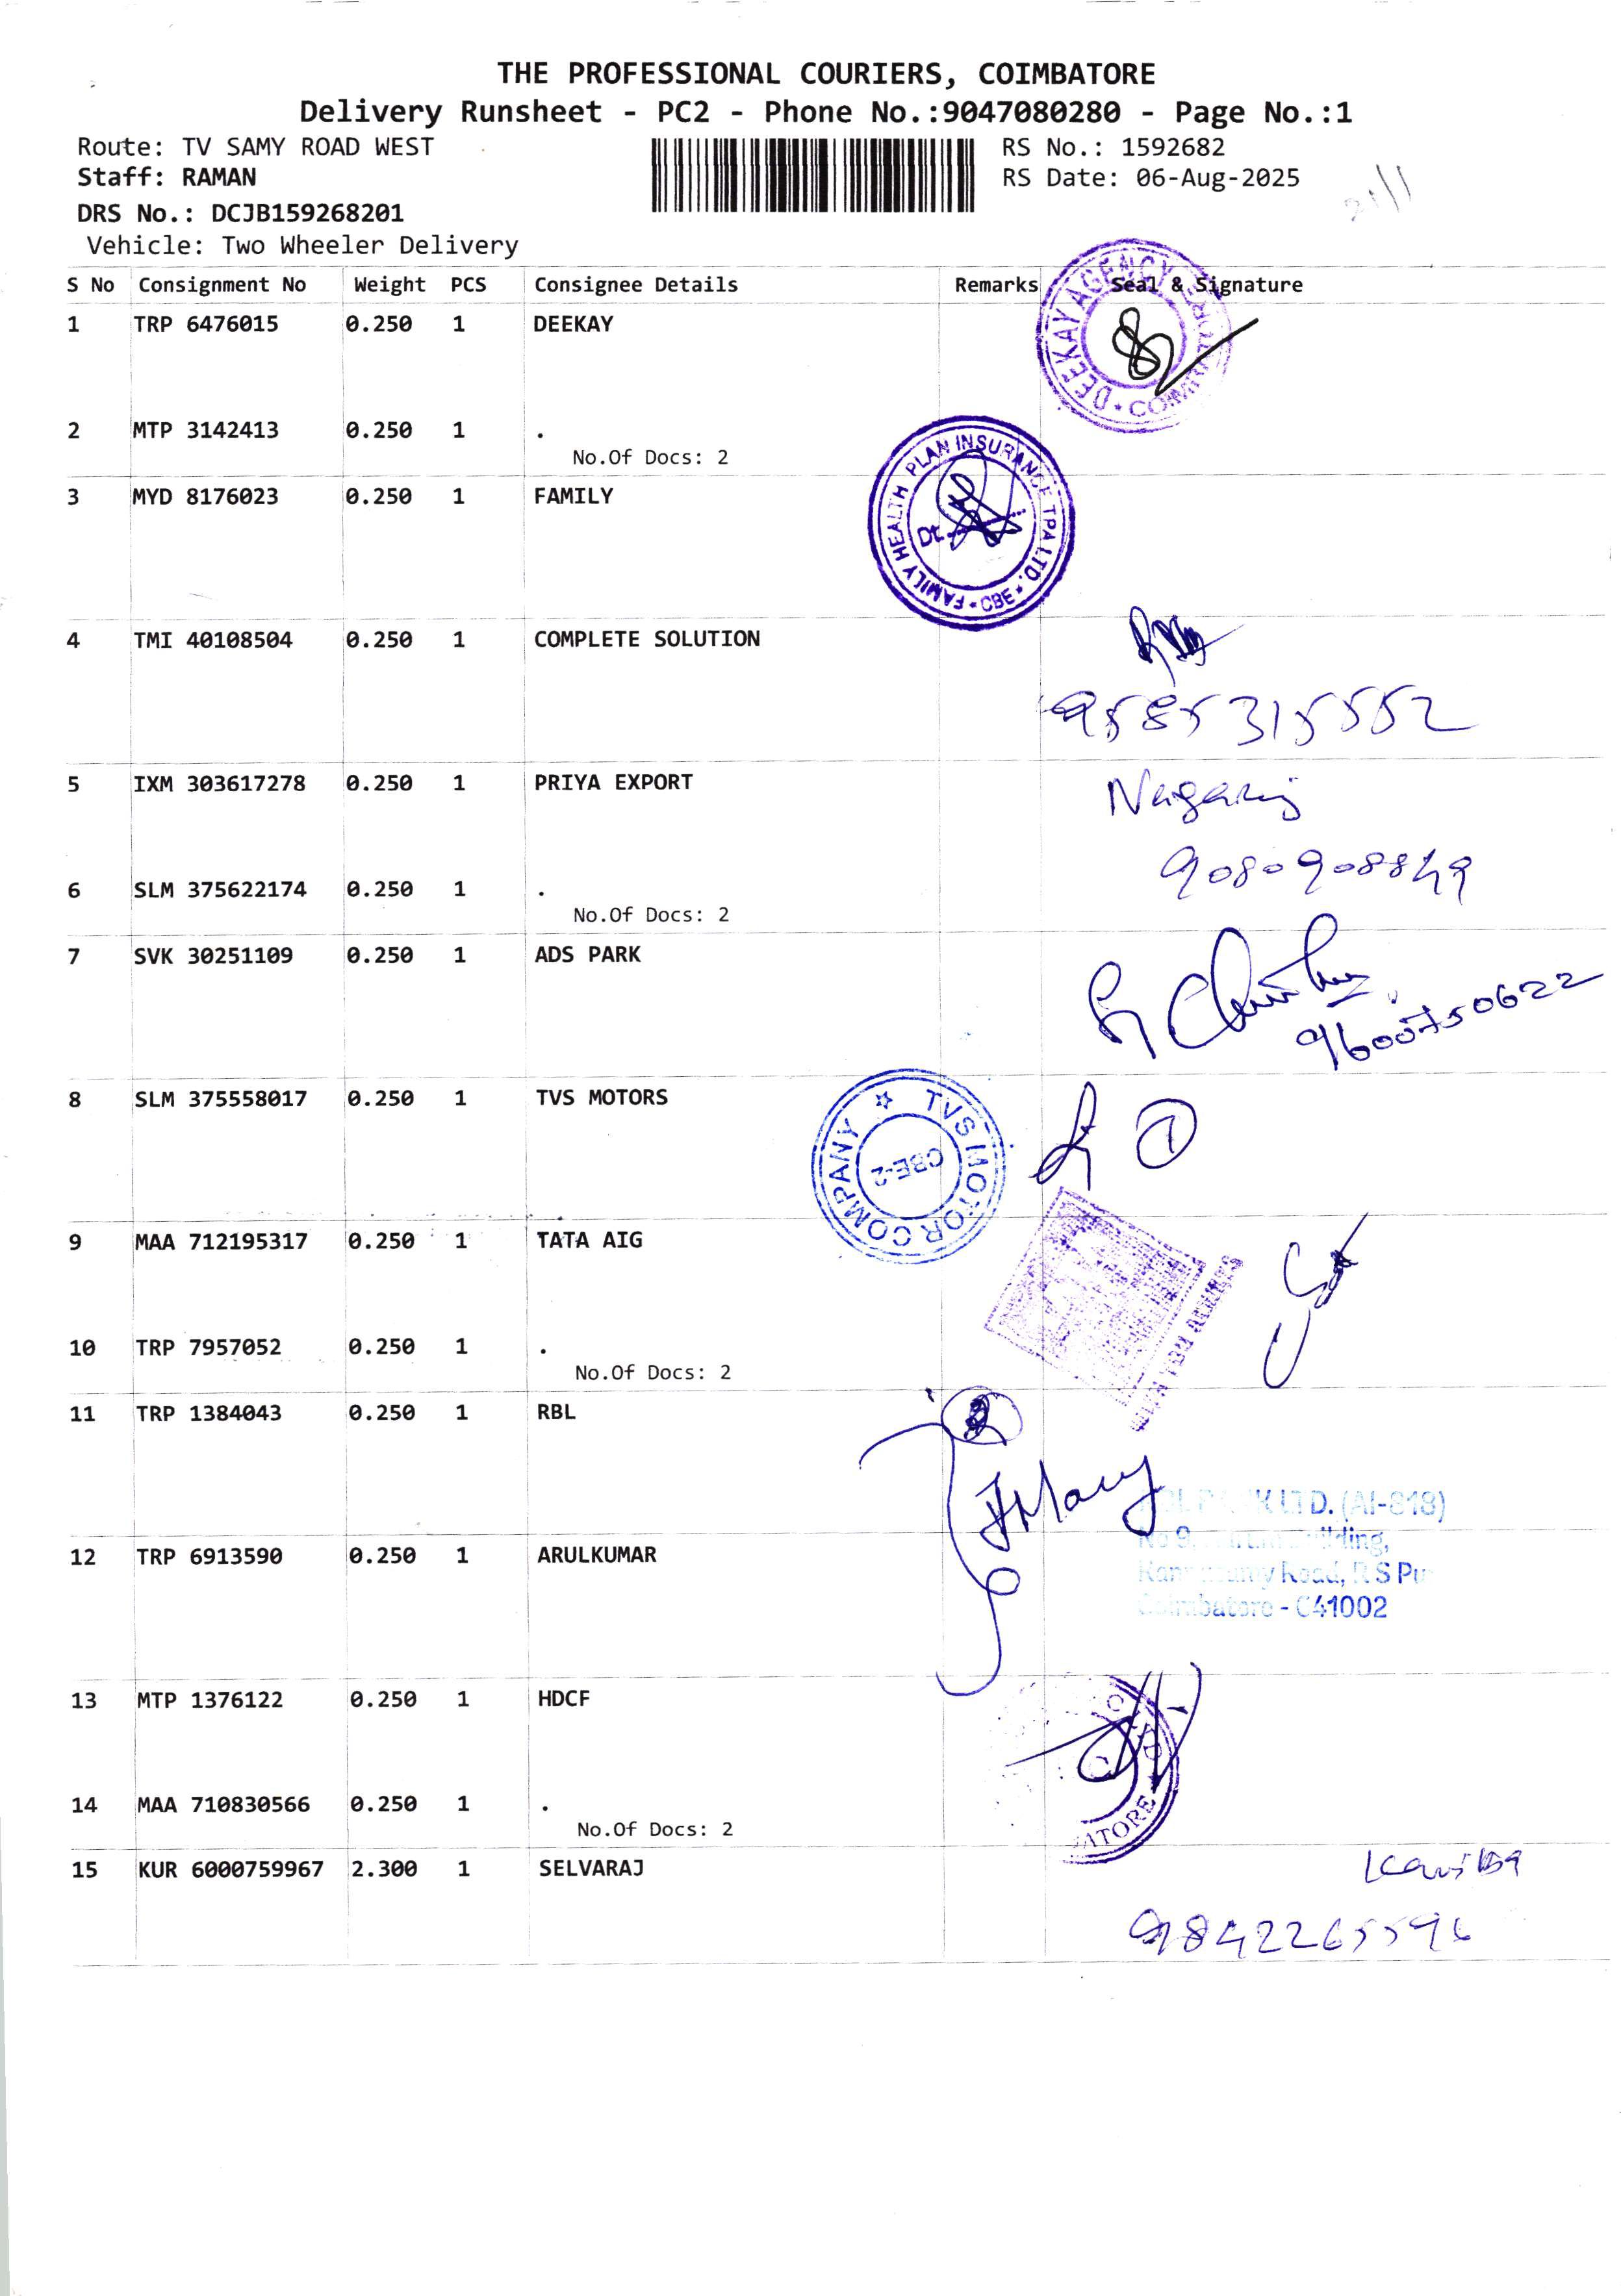 THE PROFESSIONAL COURIERS, COIMBATORE
Delivery Runsheet - PC2 - Phone No.:9047080280 - Page No.:1
Route: TV SAMY ROAD WEST
RS No.: 1592682
Staff: RAMAN
RS Date: 06-Aug-2025
DRS No.: DCJB159268201
Vehicle: Two Wheeler Delivery
S No Consignment No Weight PCS Consignee Details Remarks Seal & Signature
1 TRP 6476015 0.250 1 DEEKAY
DEEKAY AGENCY
2 MTP 3142413 0.250 1 .
No.Of Docs: 2
3 MYD 8176023 0.250 1 FAMILY
FAMILY HEALTH PLAN INSURANCE TPA LTD. * CBE *
Dt.
4 TMI 40108504 0.250 1 COMPLETE SOLUTION
9585315552
5 IXM 303617278 0.250 1 PRIYA EXPORT
Nagaraj
9080908849
6 SLM 375622174 0.250 1 .
No.Of Docs: 2
7 SVK 30251109 0.250 1 ADS PARK
9600750622
8 SLM 375558017 0.250 1 TVS MOTORS
TVS MOTOR COMPANY
CBE-2
1
9 MAA 712195317 0.250 1 TATA AIG
10 TRP 7957052 0.250 1 .
No.Of Docs: 2
11 TRP 1384043 0.250 1 RBL
LTD. (AI-818)
12 TRP 6913590 0.250 1 ARULKUMAR
Road, R S Pu
Coimbatore - 641002
13 MTP 1376122 0.250 1 HDCF
14 MAA 710830566 0.250 1 .
No.Of Docs: 2
15 KUR 6000759967 2.300 1 SELVARAJ
9842265596